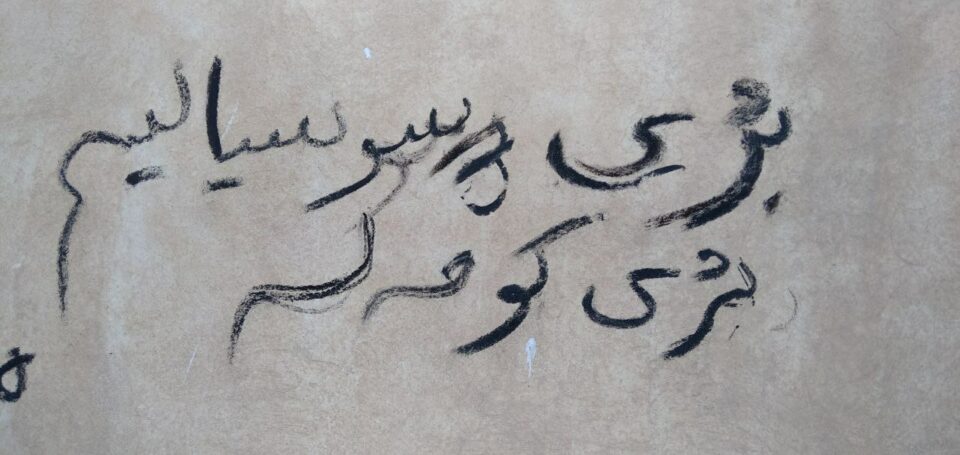 بژی سوسیالیسم
بژی کومه له